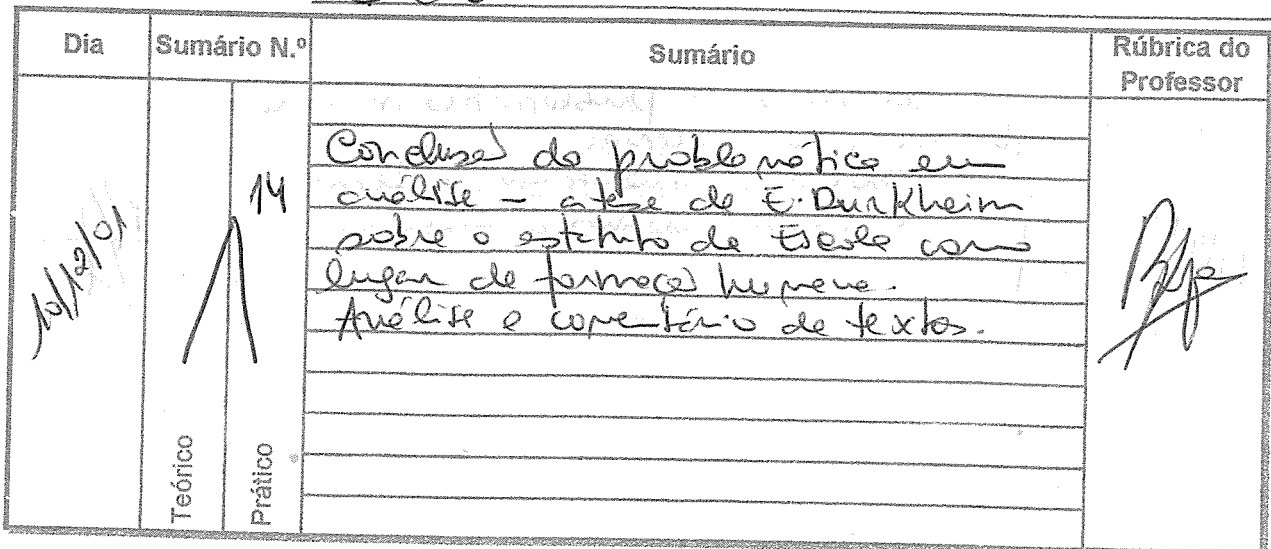 Dia Sumário N.º Sumário Rúbrica do Professor
10/12/01
14
Conclusão da problemática em
análise – a tese de E. Durkheim
sobre o estatuto da Escola como
lugar de formação humana.
Análise e comentário de textos.
Teórico
Prático